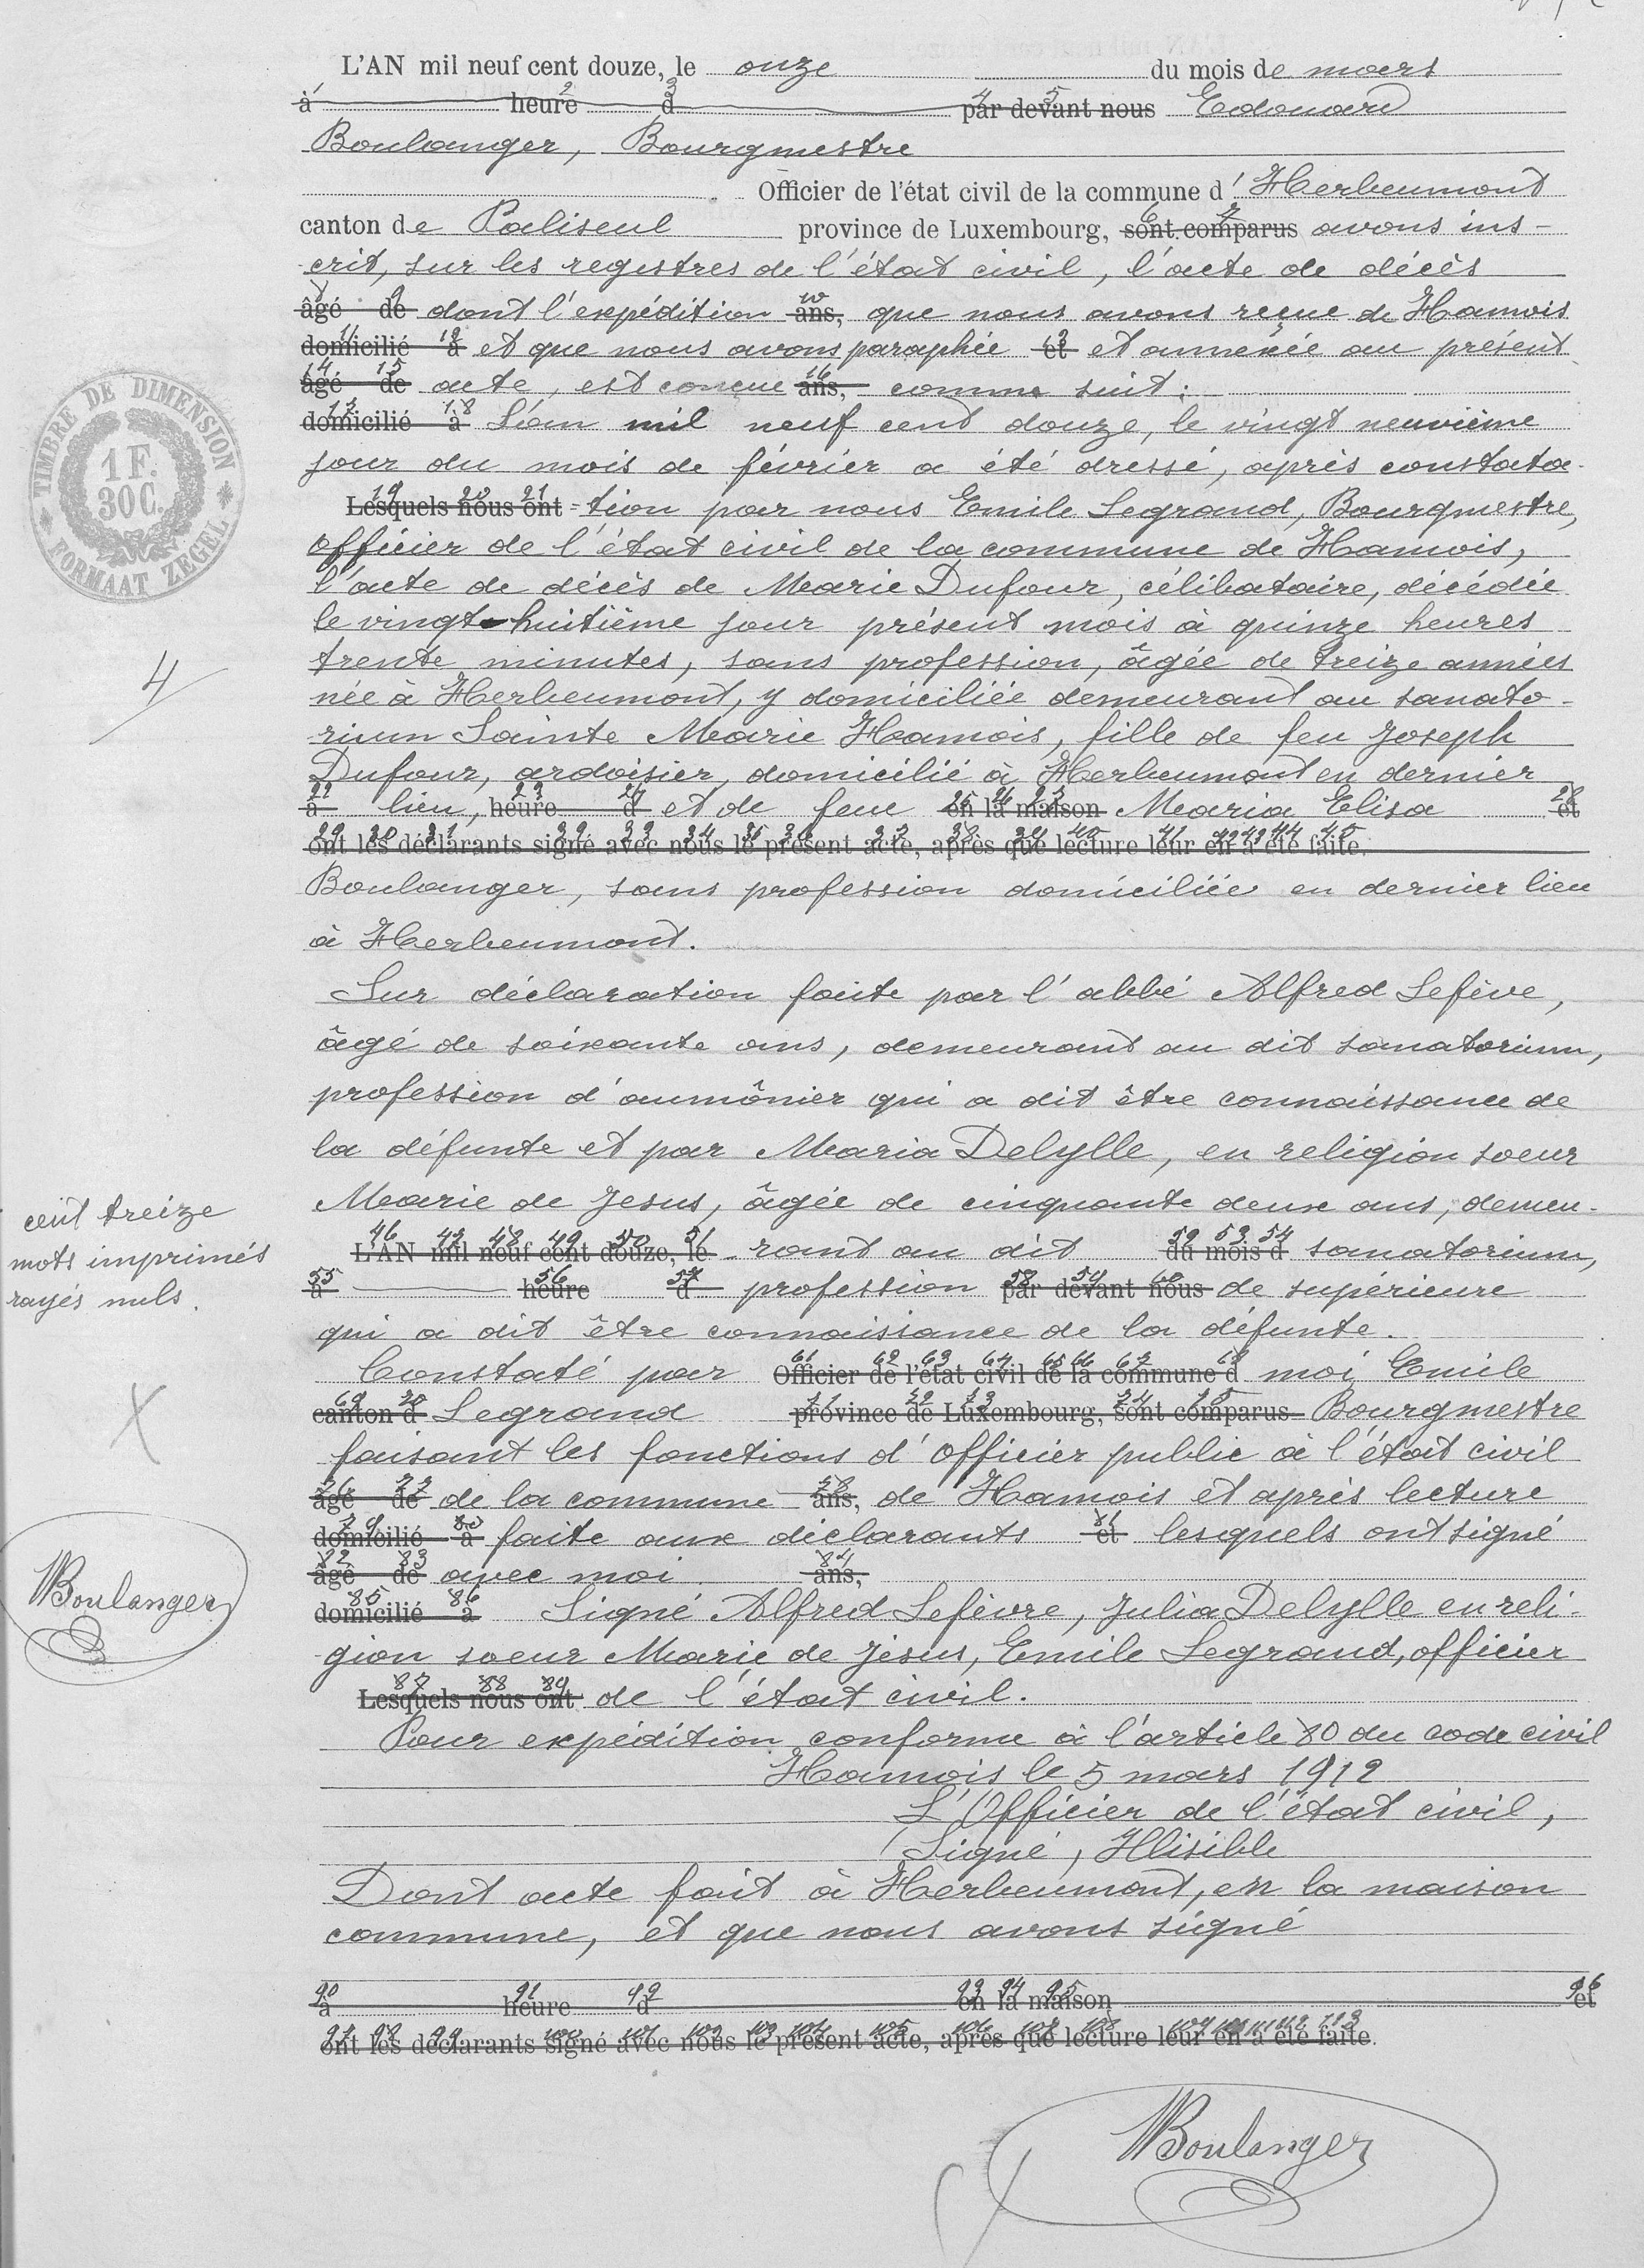 L'AN mil neuf cent douze, le onze du mois de mars
à heure d par devant nous Edouard
Boulanger, Bourgmestre
Officier de l'état civil de la commune d'Herbeumont
canton de Paliseul province de Luxembourg, sont comparus avons ins-
crit, sur les registres de l'état civil, l'acte de décès
âgé de dont l'expédition ans, que nous avons reçue de Hamois
domicilié à et que nous avons paraphée et et annexée au présent
âgé de acte, est conçue ans, comme suit :
domicilié à L'an mil neuf cent douze, le vingt neuvième
jour du mois de février a été dressé, après constata-
Lesquels nous ont -tion par nous Emile Legrand, Bourgmestre,
officier de l'état civil de la commune de Hamois,
l'acte de décès de Marie Dufour, célibataire, décédée
le vingt-huitième jour présent mois à quinze heures
trente minutes, sans profession, âgée de treize années
née à Herbeumont, y domiciliée demeurant au sanato-
rium Sainte Marie Hamois, fille de feu Joseph
Dufour, ardoisier, domicilié à Herbeumont en dernier
à lieu, heure d et de feue en la maison Maria Elisa et
ont les déclarants signé avec nous le présent acte, après que lecture leur en a été faite.
Boulanger, sans profession domiciliée en dernier lieu
à Herbeumont.
Sur déclaration faite par l'abbé Alfred Lefève,
âgé de soixante ans, demeurant au dit sanatorium,
profession d'aumônier qui a dit être connaissance de
la défunte et par Maria Delylle, en religion soeur
Marie de Jesus, âgée de cinquante deux ans, demeu-
L'AN mil neuf cent douze, le rant au dit du mois d sanatorium,
à heure d profession par devant nous de supérieure
qui a dit être connaissance de la défunte.
Constaté par Officier de l'état civil de la commune d moi Emile
canton d Legrand province de Luxembourg, sont comparus Bourgmestre
faisant les fonctions d'officier public à l'état civil
âgé de de la commune ans, de Hamois et après lecture
domicilié à faite aux déclarants et lesquels ont signé
âgé de avec moi. ans,
domicilié à Signé Alfred Lefèvre, Julia Delylle en reli-
gion soeur Marie de Jésus, Emile Legrand, officier
Lesquels nous ont de l'état civil.
Pour expédition conforme à l'article 80 du code civil
Hamois le 5 mars 1912
L'Officier de l'état civil,
Signé, Illisible
Dont acte fait à Herbeumont, en la maison
commune, et que nous avons signé
à heure d en la maison et
ont les déclarants signé avec nous le présent acte, après que lecture leur en a été faite.
Boulanger
TIMBRE DE DIMENSION
1 F.
30 C.
FORMAAT ZEGEL
4
cent treize
mots imprimés
rayés nuls.
X
Boulanger